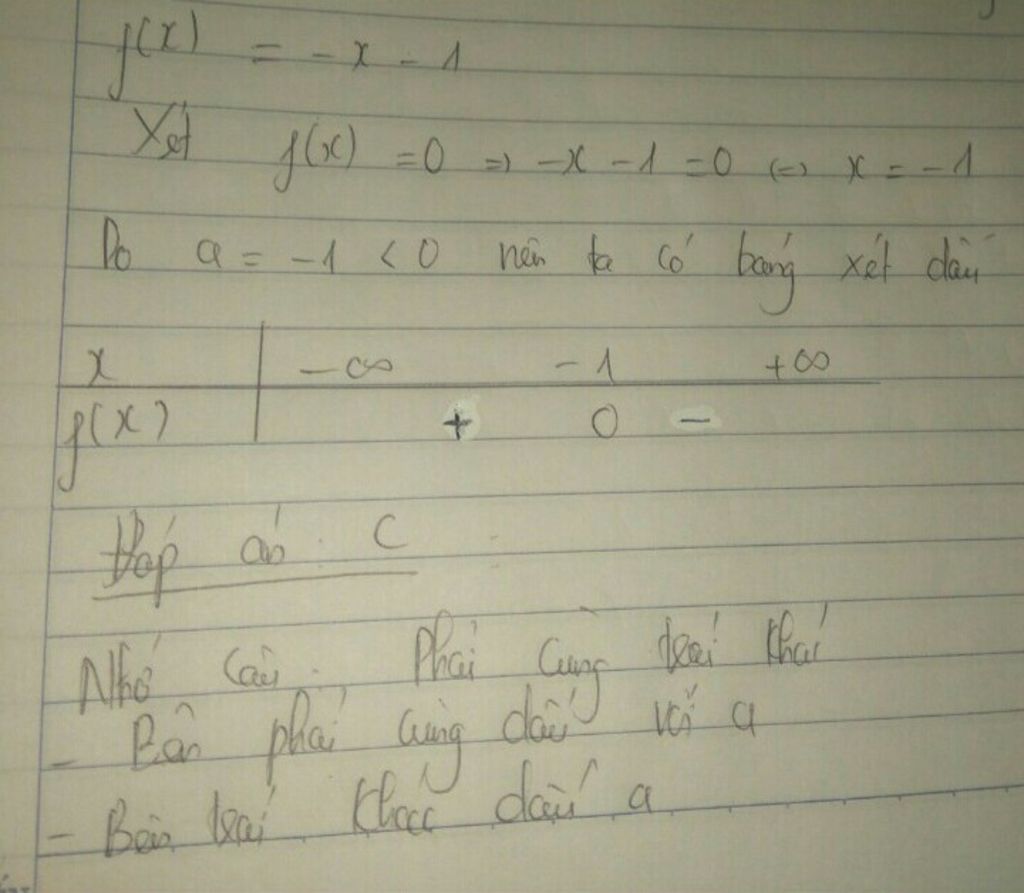 f(x) = -x - 1
Xét f(x) = 0 => -x - 1 = 0 <=> x = -1
Do a = -1 < 0 nên ta có bảng xét dấu
x -∞ -1 +∞
f(x) + 0 -
Đáp án C
Nhớ câu. Phải cùng trái khác
- Bên phải cùng dấu với a
- Bên trái khác dấu a